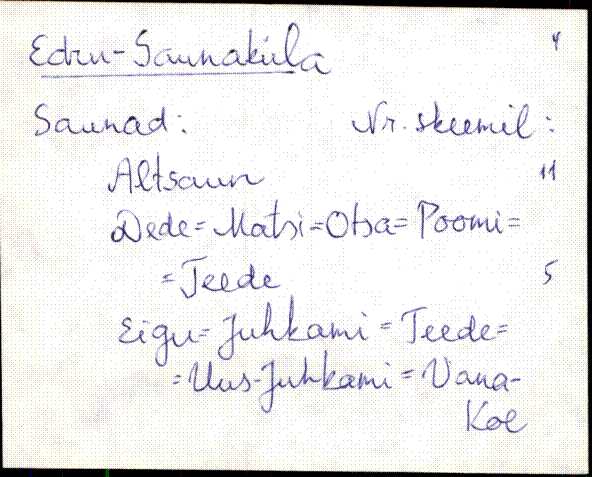 Edru-Saunaküla 4
Saunad: Nr. skeemil:
Altsaun 11
Dede=Matsi=Otsa=Poomi=
=Teede 5
Eigu=Juhkami=Teede=
=Uus-Juhkami=Vana-
Koe